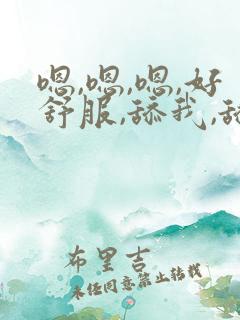 嗯,嗯,嗯,好
舒服,舔我,舔
布里吉
未经同意禁止转载